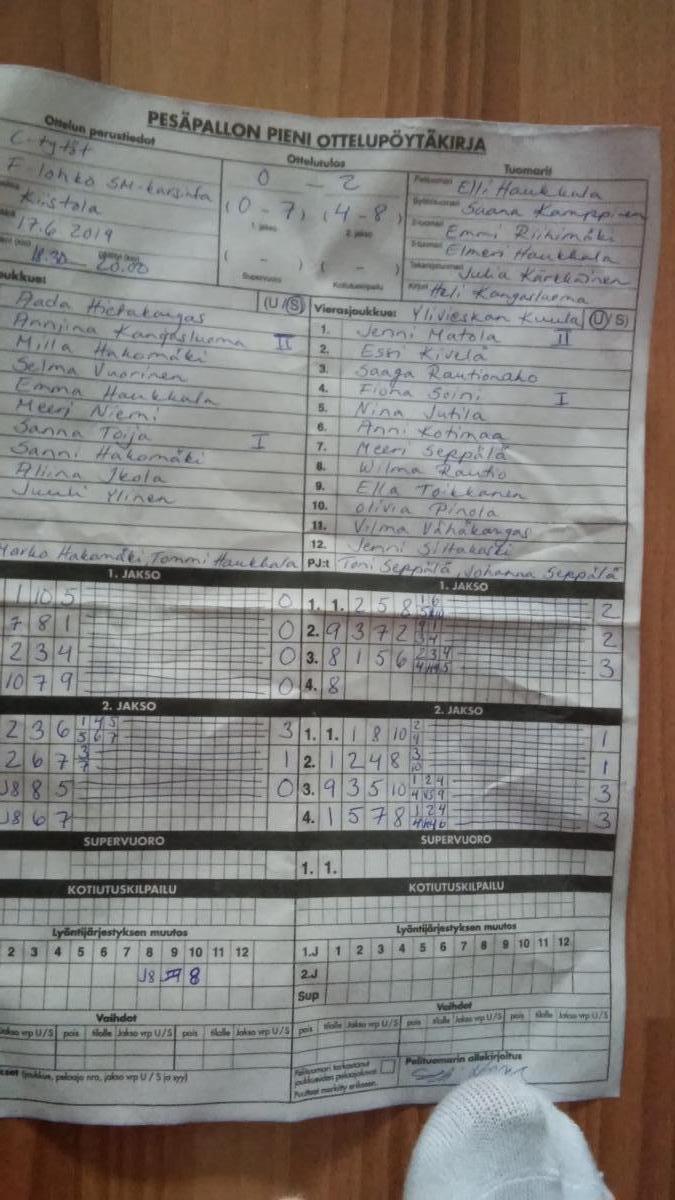 PESÄPALLON PIENI OTTELUPÖYTÄKIRJA
Ottelun perustiedot
C-tytöt
F-lohko SM-karsinta
Kiistola
17.6 2019
18.30 20.00
Ottelutulos
0 - 2
(0 - 7) (4 - 8)
1. jakso 2. jakso
( - ) ( - )
Supervuoro Kotiutuskilpailu
Tuomarit
Elli Haukkala
Saana Kamppinen
Emmi Riihimäki
Elmeri Haukkala
Julia Kärkkäinen
Heli Kangasluoma
oukkue: (U / S)
Aada Hietakangas
Annjina Kangasluoma II
Milla Hakomäki
Selma Vuorinen
Emma Haukkala
Meeri Niemi
Sanna Toija I
Sanni Hakomäki
Aliina Ikola
Juuli Ylinen
Marko Hakamäki, Tommi Haukkala
Vierasjoukkue: Ylivieskan Kuula (U / S)
1. Jenni Matola II
2. Essi Kivelä
3. Saaga Rautionaho
4. Fiona Soini I
5. Nina Jutila
6. Anni Kotimaa
7. Meeri Seppälä
8. Wilma Rautio
9. Ella Toikkanen
10. Olivia Pinola
11. Vilma Vähäkangas
12. Jenni Siltakoski
PJ:t Toni Seppälä, Johanna Seppälä
1. JAKSO
1 10 5 0
7 8 1 0
2 3 4 0
10 7 9 0
1. JAKSO
1. 1. 2 5 8 2
2. 9 3 7 2 2
3. 8 1 5 6 2 3 4 3
4. 8
2. JAKSO
2 3 6 1 4 5 3
5 6 7
2 6 7 3 1
7
J8 8 5 0
J8 6 7
2. JAKSO
1. 1. 1 8 10 2 1
4
2. 1 2 4 8 3 1
10
3. 9 3 5 10 1 2 4 3
4. 1 5 7 8 1 2 4 3
SUPERVUORO
SUPERVUORO
1. 1.
KOTIUTUSKILPAILU
KOTIUTUSKILPAILU
Lyöntijärjestyksen muutos
2 3 4 5 6 7 8 9 10 11 12
J8 8
Lyöntijärjestyksen muutos
1.J 1 2 3 4 5 6 7 8 9 10 11 12
2.J
Sup
Vaihdot
Jakso vrp U/S pois tilalle Jakso vrp U/S pois tilalle Jakso vrp U/S
Vaihdot
pois tilalle Jakso vrp U/S pois tilalle Jakso vrp U/S pois tilalle Jakso vrp U/S
(joukkue, pelaaja nro, jakso vrp U / S ja syy)
Pelituomari tarkastanut
joukkueiden pelaajaluvat
Puutteet merkitty erikseen.
Pelituomarin allekirjoitus